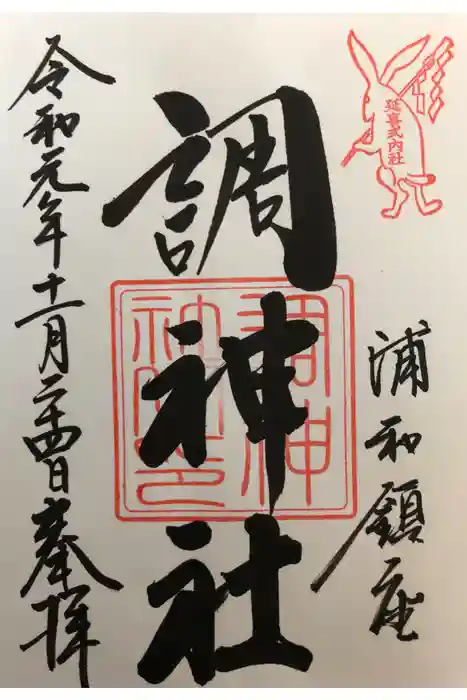 延喜式内社
浦和鎮座
調神社
調神
社之印
令和元年十一月二十四日奉拝